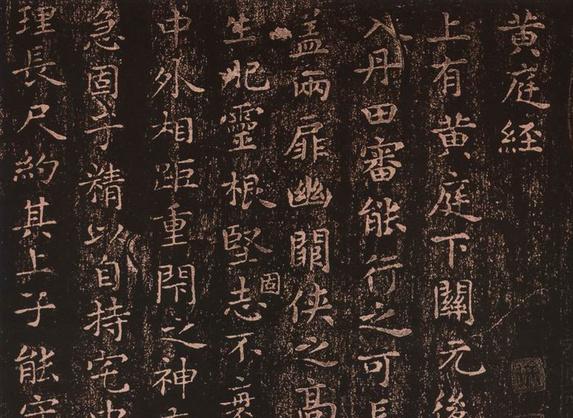 黄庭経
上有黄庭下關元後
入丹田審能行之可長
盖兩扉幽關俠之高
生肥靈根堅固志不衰
中外相距重閇之神
急固子精以自持宅中
理長尺約其上子能守